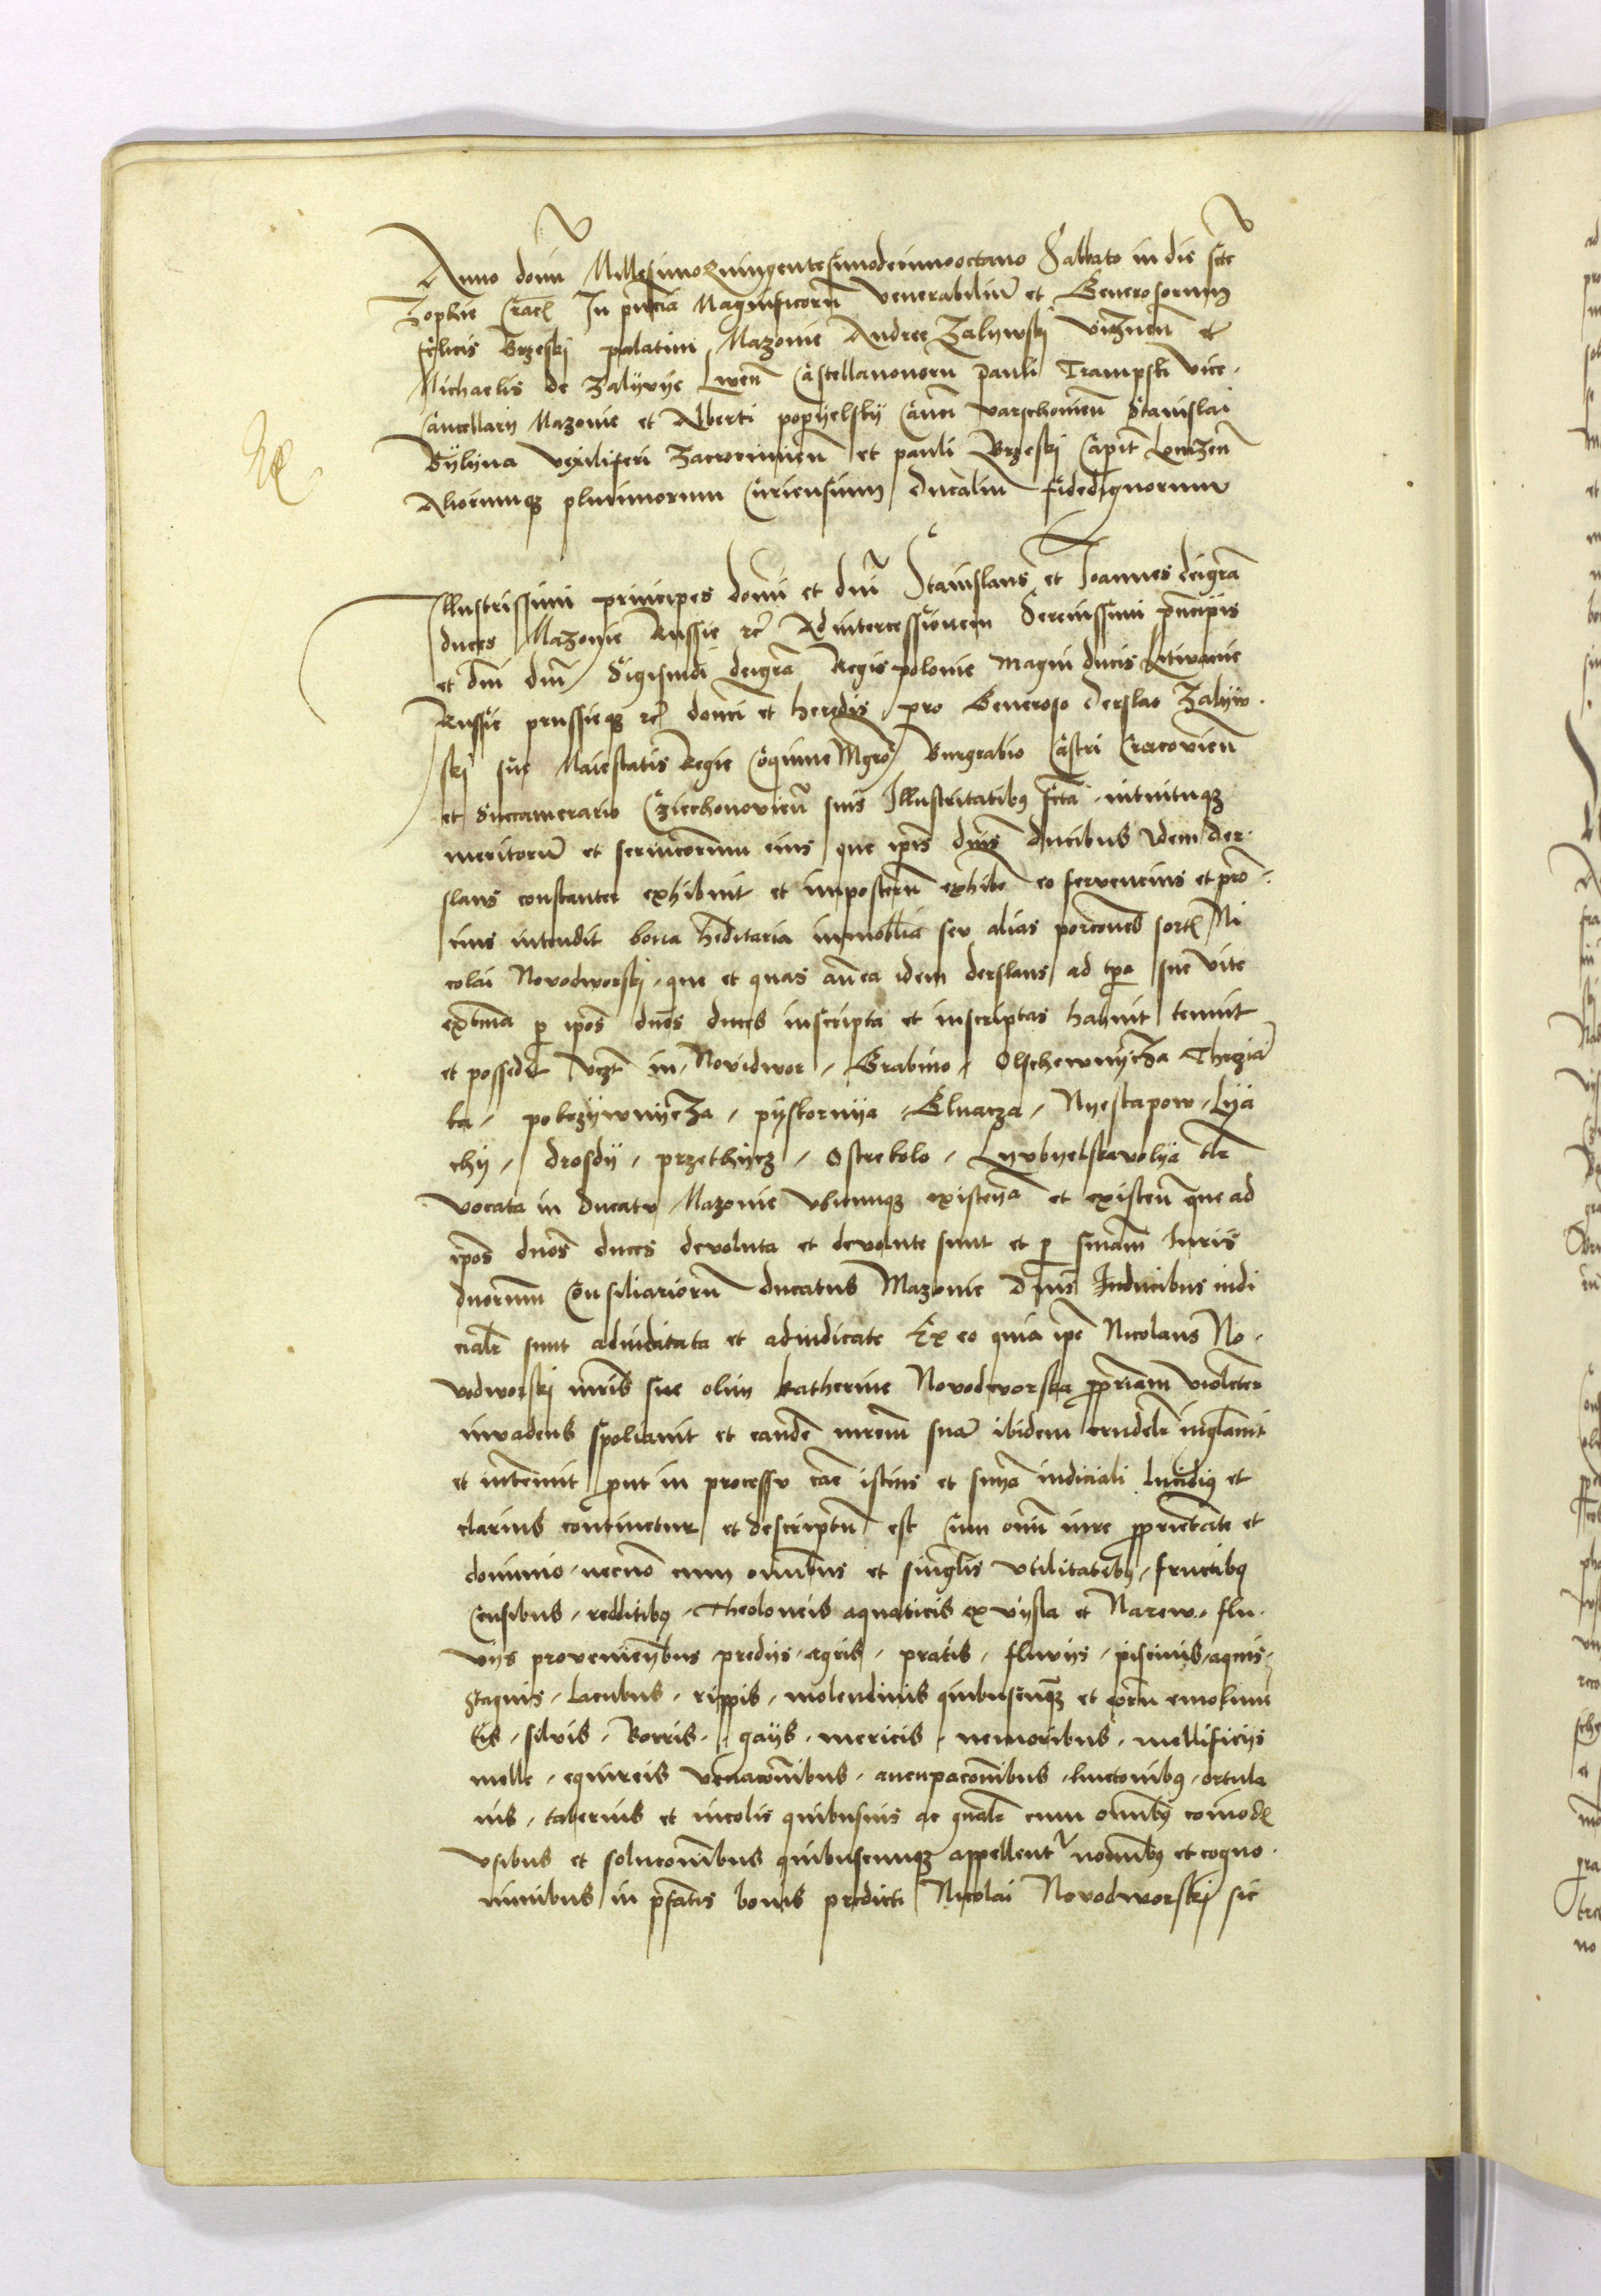 Anno domi Millesimoquingentesimodecimooctavo Sabbato in die scte
Zophie Crac In pncia Magnificoru venerabiliu et Generosorum
felicis Brzeski palatini Mazovie Andree Zalywski viznen et
Michaelis de Zalywye Lwen Castellanoru pauli Trampski vice
Cancellarij Mazovie et Alberti popyelsky Canci varschovien Stanislai
Bylyna vexiliferi Zacrocimien et pauli Brzeski Capit Lomzen
Aliorumq plurimorum Curiensium ducaliu fidedignorum
Illustrissimi principes domi et dni Stanislaus et Joannes deigra
duces Mazovie Russie rc Ad intercessionem Serenissimi principis
et dni dni Sigismdi deigra Regis polonie Magni ducis Litwanie
Russie prussieq rc domi et heredis pro Generoso derslao Zalyw
ski sue Maiestatis Regie Coquine Mgro Burgrabio Castri Cracovien
et Succamerario Cziechonovien suis Illustritatibus fcta intuituq
meritoru et serviciorum eius que ipis dnis ducibus idem der
slaus constanter exhibuit et imposteru exhibe eo fervencius et pro
cius intendit bona heditaria immoblia seu alias porcones sort Ni
colai Novodworski que et quas antea idem derslaus ad tpa sue vite
extma p ipos dnos duces inscripta et inscriptas habuit tenuit
et possedit vczt in Novidwor Grabino Olschewnycza Thrzia
ka pokrzywnycza pystornya Gluacza Nyestapow Lya
chy drosdy przethycz Ostrekolo Lyvbyelskavolya tlr
vocata in ducatu Mazovie ubicunq existena et existen que ad
ipos dnos duces devoluta et devolute sunt et p sniam Juris
dnorum Consiliarioru ducatus Mazovie dnis ducibus iudi
cialr sunt adiudicata et adiudicate Ex eo quia ipe Nicolaus No
vodworski mris sue olim katherine Novodworska ppriam violeter
invadens spoliavit et eande mrem sua ibidem crudelr iuglavit
et interemit put in processu cae istius et snia iudiciali lucidius et
clarius continetur et descriptu est Cum omi iure pprietate et
dominio necno cum omibus et singlis utilitatibus fructibus
Censibus redditibus Theoloneis aquaticis ex vysla et Narew flu
vijs provenienbus predijs agris pratis fluvijs piscinis aquis
stagnis lacubus rippis molendinis quibuscuq et eoru emolume
tis silvis Borris gays mericis nemoribus mellificijs
melle equireis venaconibus aucupaconibus hutonibus ortula
nis tabernis et incolis quibusvis ac gnalr cum omibus comod
usibus et soluconibus quibuscunq appellent nomibus et cogno
minibus in pfatis bonis predicti Nicolai Novodworski sic